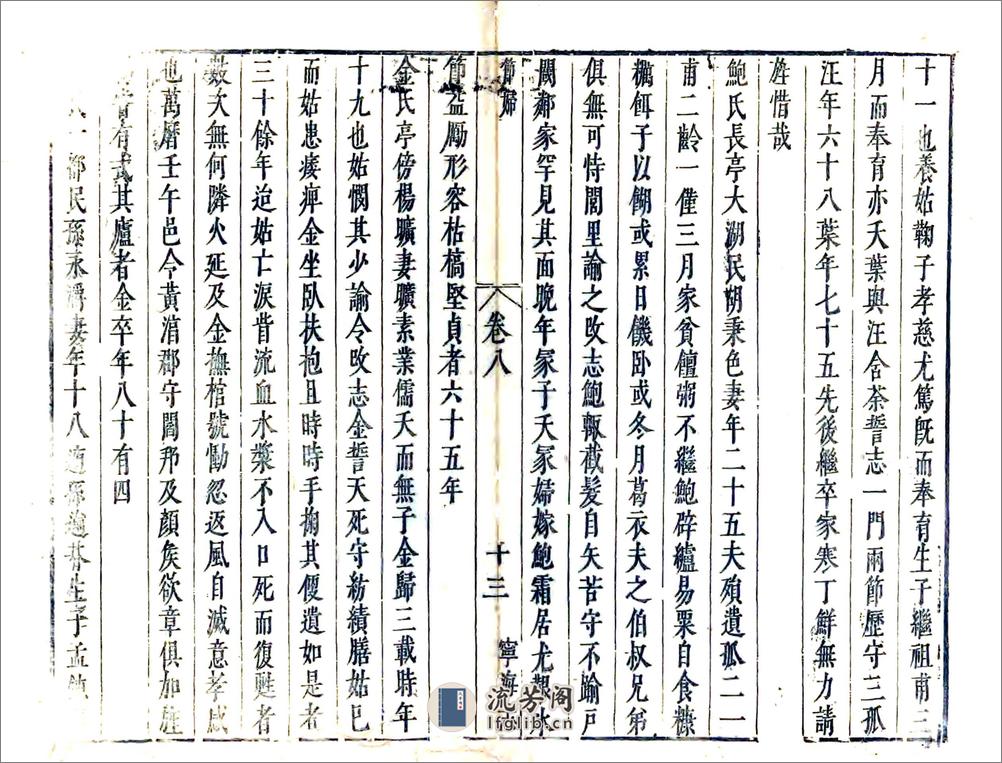 十一也養姑鞠子孝慈尤篤旣而奉育生子繼祖甫三
月而奉育亦夭葉與汪含荼誓志一門兩節歷守三孤
汪年六十八葉年七十五先後繼卒家寒丁鮮無力請
旌惜哉
鮑氏長亭大湖民朔秉色妻年二十五夫殞遺孤二一
甫二齡一僅三月家貧饘粥不繼鮑辟纑易粟自食糠
糲餌子以餬或累日饑卧或冬月葛衣夫之伯叔兄弟
俱無可恃閭里諭之攺志鮑輙截髮自矢苦守不踰戸
閾鄰家罕見其面晩年冡子夭冡婦嫁鮑霜居尤艱氷
節婦
卷八
十三
寧海
節益勵形容枯槁堅貞者六十五年
金氏亭傍楊曠妻曠素業儒夭而無子金歸三載時年
十九也姑憫其少諭令攺志金誓天死守紡績膳姑已
而姑患痿痺金坐臥扶抱且時時手掬其便遺如是者
三十餘年迨姑亡淚眥流血水漿不入口死而復甦者
數次無何隣火延及金撫棺號慟忽返風自滅意孝感
也萬曆壬午邑令黃㴋郡守閻邦及顏矦欲章俱加旌
有式其廬者金卒年八十有四
都民孫永妻年十八適孫生子孟
流芳阁
lfglib.cn